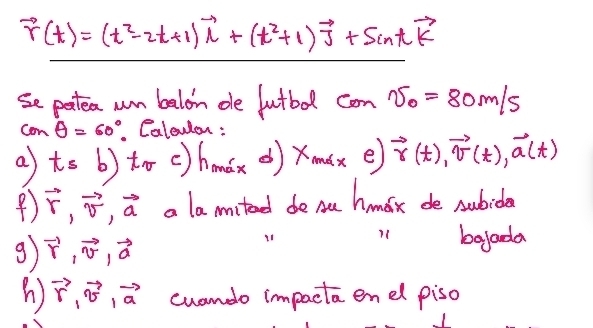 r⃗(t) = (t²-2t+1)i⃗ + (t²+1)j⃗ + Sint k⃗
Se patea un balón de futbol con v₀ = 80m/s
con θ = 60°. Calcular:
a) ts b) tv c) hmáx d) Xmáx e) r⃗(t), v⃗(t), a⃗(t)
f) r⃗, v⃗, a⃗ a la mitad de su hmáx de subida
g) r⃗, v⃗, a⃗ " " bajada
h) r⃗, v⃗, a⃗ cuando impacta en el piso